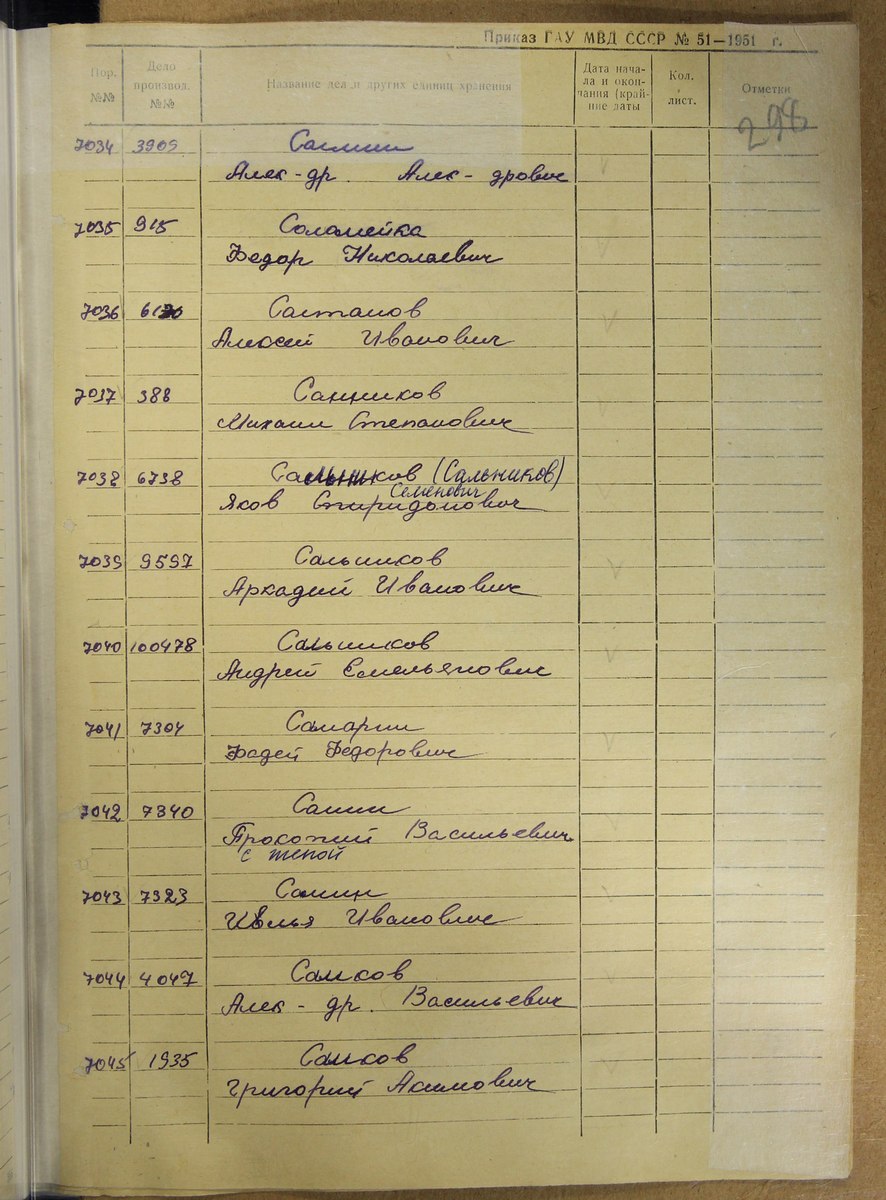 Приказ ГАУ МВД СССР № 51—1951 г.
Пор. №№
Дело производ. №№
Название дел и других единиц хранения
Дата начала и окончания (крайние даты
Кол. лист.
Отметки
298
7034 3909
Алек-др. Алек-дрович
7035 915 Соломейка
Федор Николаевич
7036 Састанов
Алексей Иванович
7037 388 Санников
Михаил Степанович
7038 6738 (Сальников)
Семенович
Яков Спиридонович
7039 9597 Сальников
Аркадий Иванович
7040 100478 Сальников
Андрей Емельянович
7041 7304 Самарин
Фадей Федорович
7042 7340 Санин
Прокопий Васильевич
с женой
7043 7323 Санин
Илья Иванович
7044 4047 Самков
Алек-др. Васильевич
7045 1935 Самков
Григорий Акимович